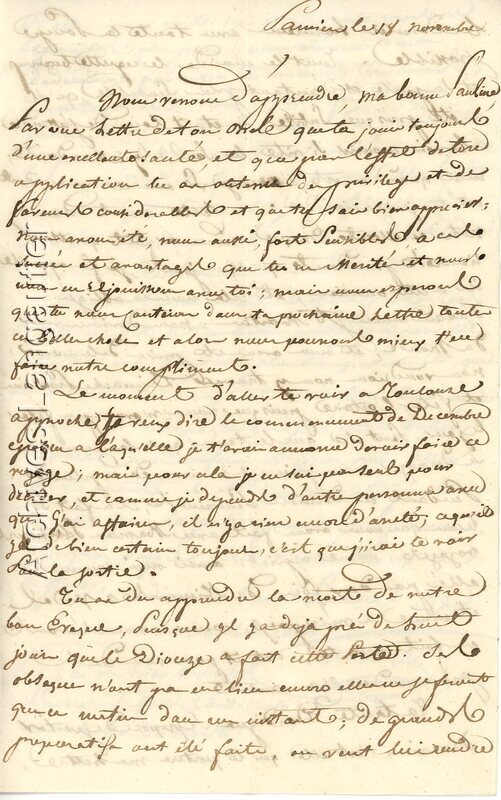 Pamiers le 18 novembre
Nous venons d'apprendre, ma bonne Pauline
Par une Lettre de ton oncle que tu jouis toujours
d'une excellente santé, et que par l'effet de ton
application tu as obtenu des privileges et des
faveurs considerables et que tu sais bien apprecier;
Nous avons été, nous aussi, fort sensibles a ces
succès et avantages que tu as Merité et nous
nous en rejouissons avec toi; mais nous esperons
que tu nous conteras dans ta prochaine Lettre toutes
ces belles choses et alors nous pourrons mieux t'en
faire notre compliment.
Le moment d'aller te voir a Toulouse
approche, Je veux dire le commencement de Decembre
epoque a laquelle je t'avais annoncé devoir faire ce
voyage; mais pour cela je ne suis pas seul pour
decider, et comme je depends d'autres personnes avec
qui j'ai affaires, il n'y a rien encore d'arreté; ce qu'il
y a de bien certain toujours, c'est que j'irai te voir
la sortie.
Tu as du apprendre la mort de notre
bon Evêque, Puisque il y a deja près de huit
jours que le Dioceze a fait cette Perte. Ses
obseques n'ont pas eu lieu encore elles ne se feront
que ce matin dans un instant; de grands
preparatifs ont été faits, on veut lui rendre
Archives Largentiel